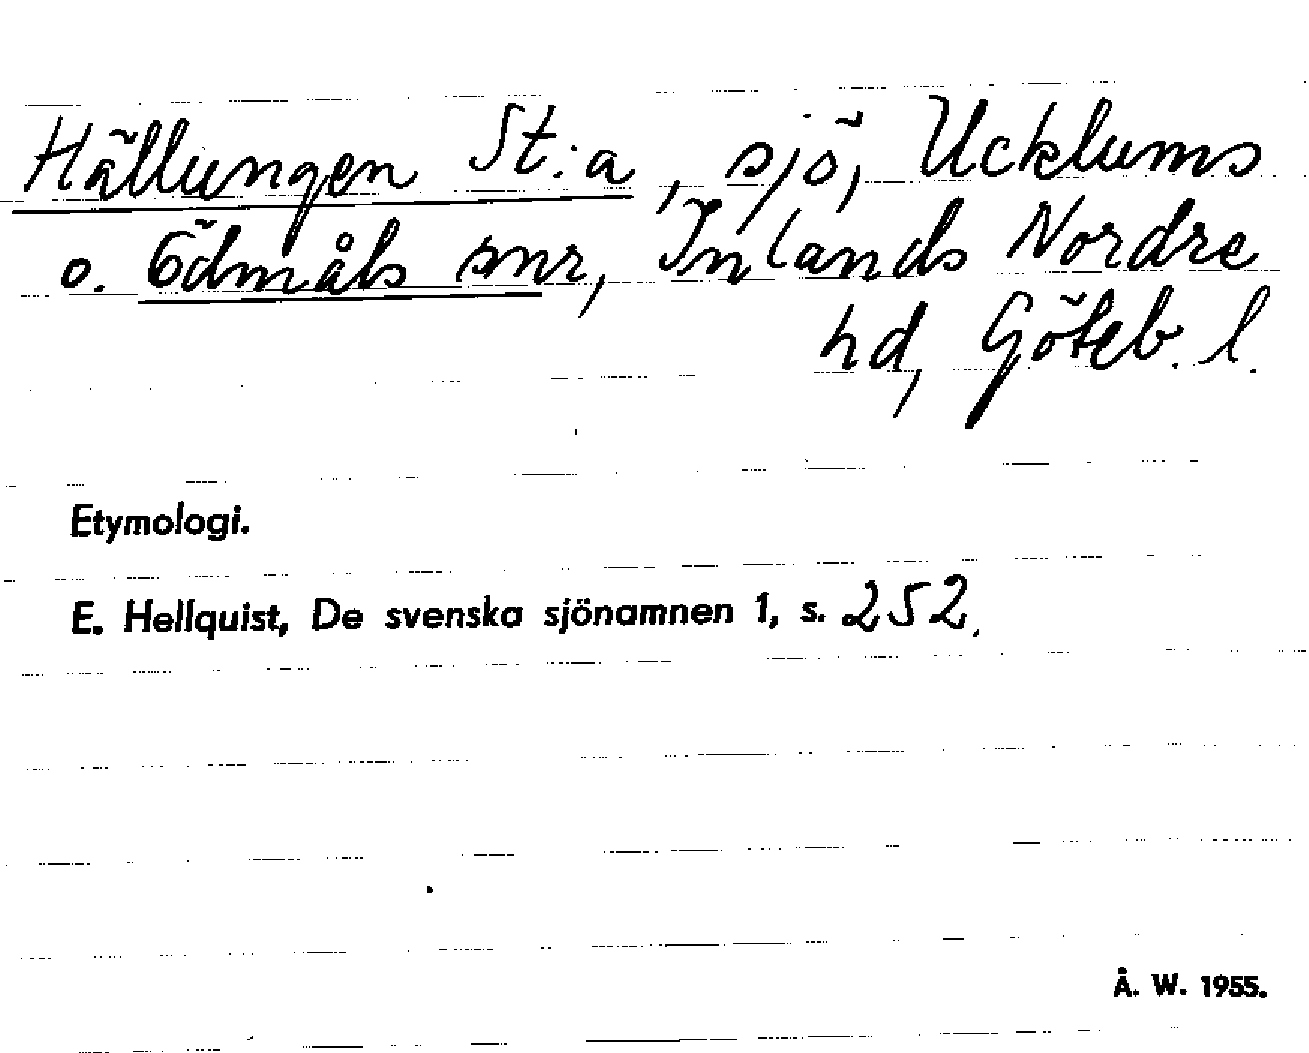 Hällungen St:a, sjö, Ucklums
o. Ödmåls snr, Inlands Nordre
hd, Göteb. l.
Etymologi.
E. Hellquist, De svenska sjönamnen 1, s. 252.
Å. W. 1955.